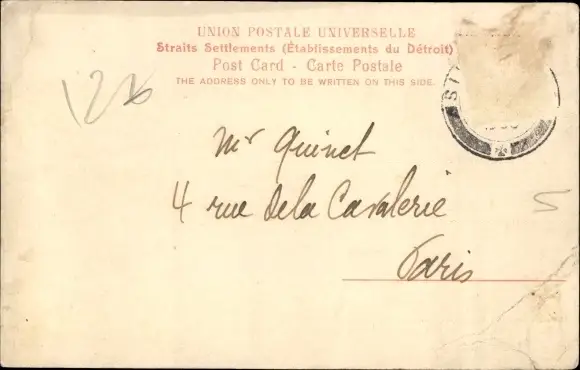 UNION POSTALE UNIVERSELLE
Straits Settlements (Établissements du Détroit)
Post Card - Carte Postale
THE ADDRESS ONLY TO BE WRITTEN ON THIS SIDE.
Mr Quinet
4 rue de la Cavalerie
Paris